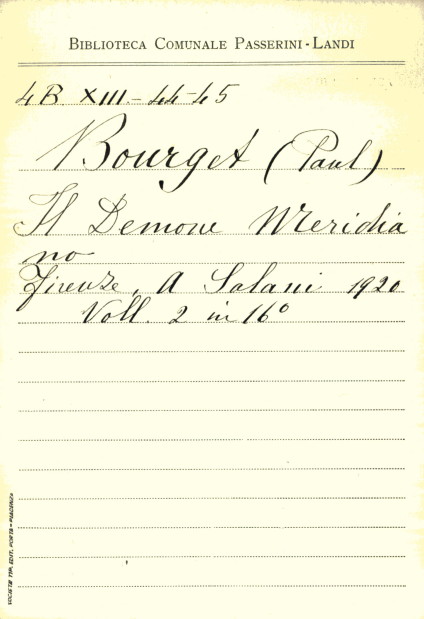 BIBLIOTECA COMUNALE PASSERINI-LANDI
4B XIII-44-45
Bourget (Paul)
Il Demone Meridia
no
Firenze, A Salani 1920
Voll. 2 in 16°
SOCIETÀ TIP. EDIT. PORTA - PIACENZA